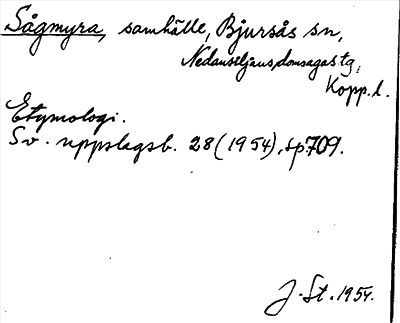 Sågmyra, samhälle, Bjursås sn,
Nedansiljans domsagas tg,
Kopp. l.
Etymologi.
Sv. uppslagsb. 28 (1954), sp 709.
J. St. 1954.